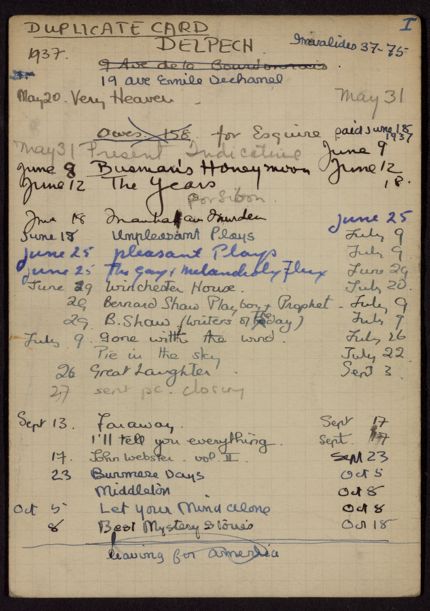 DUPLICATE CARD I
1937. DELPECH. Invalides 37-75
9 Ave de la Bourdonnais
19 ave Emile Dechanel
May 20. Very Heaven - May 31
Owes 158 for Esquire paid June 18 1937
May 31 Present Indicative June 9
June 8 Busman's Honeymoon June 12
June 12 The Years 18.
June 18 Murder June 25
June 18 Unpleasant Plays July 9
June 25 pleasant Plays July 9
June 25 The gay & melancholy Flux June 29
June 29 Winchester House. July 20.
29 Bernard Shaw Playboy & Prophet. July 9
29. B. Shaw (writers of The day) July 9
July 9. Gone with the wind. July 26
Pie in the sky July 22.
26 Great Laughter. Sept 3.
27 sent pc. closing
Sept 13. Faraway. Sept 17
I'll tell you everything. Sept. 17
17. John Webster. vol. II. Sept 23
23 Burmese Days Oct 5
Middleton Oct 5
Oct 5 Let your Mind alone Oct 8
8 Best Mystery Stories Oct 18
leaving for America